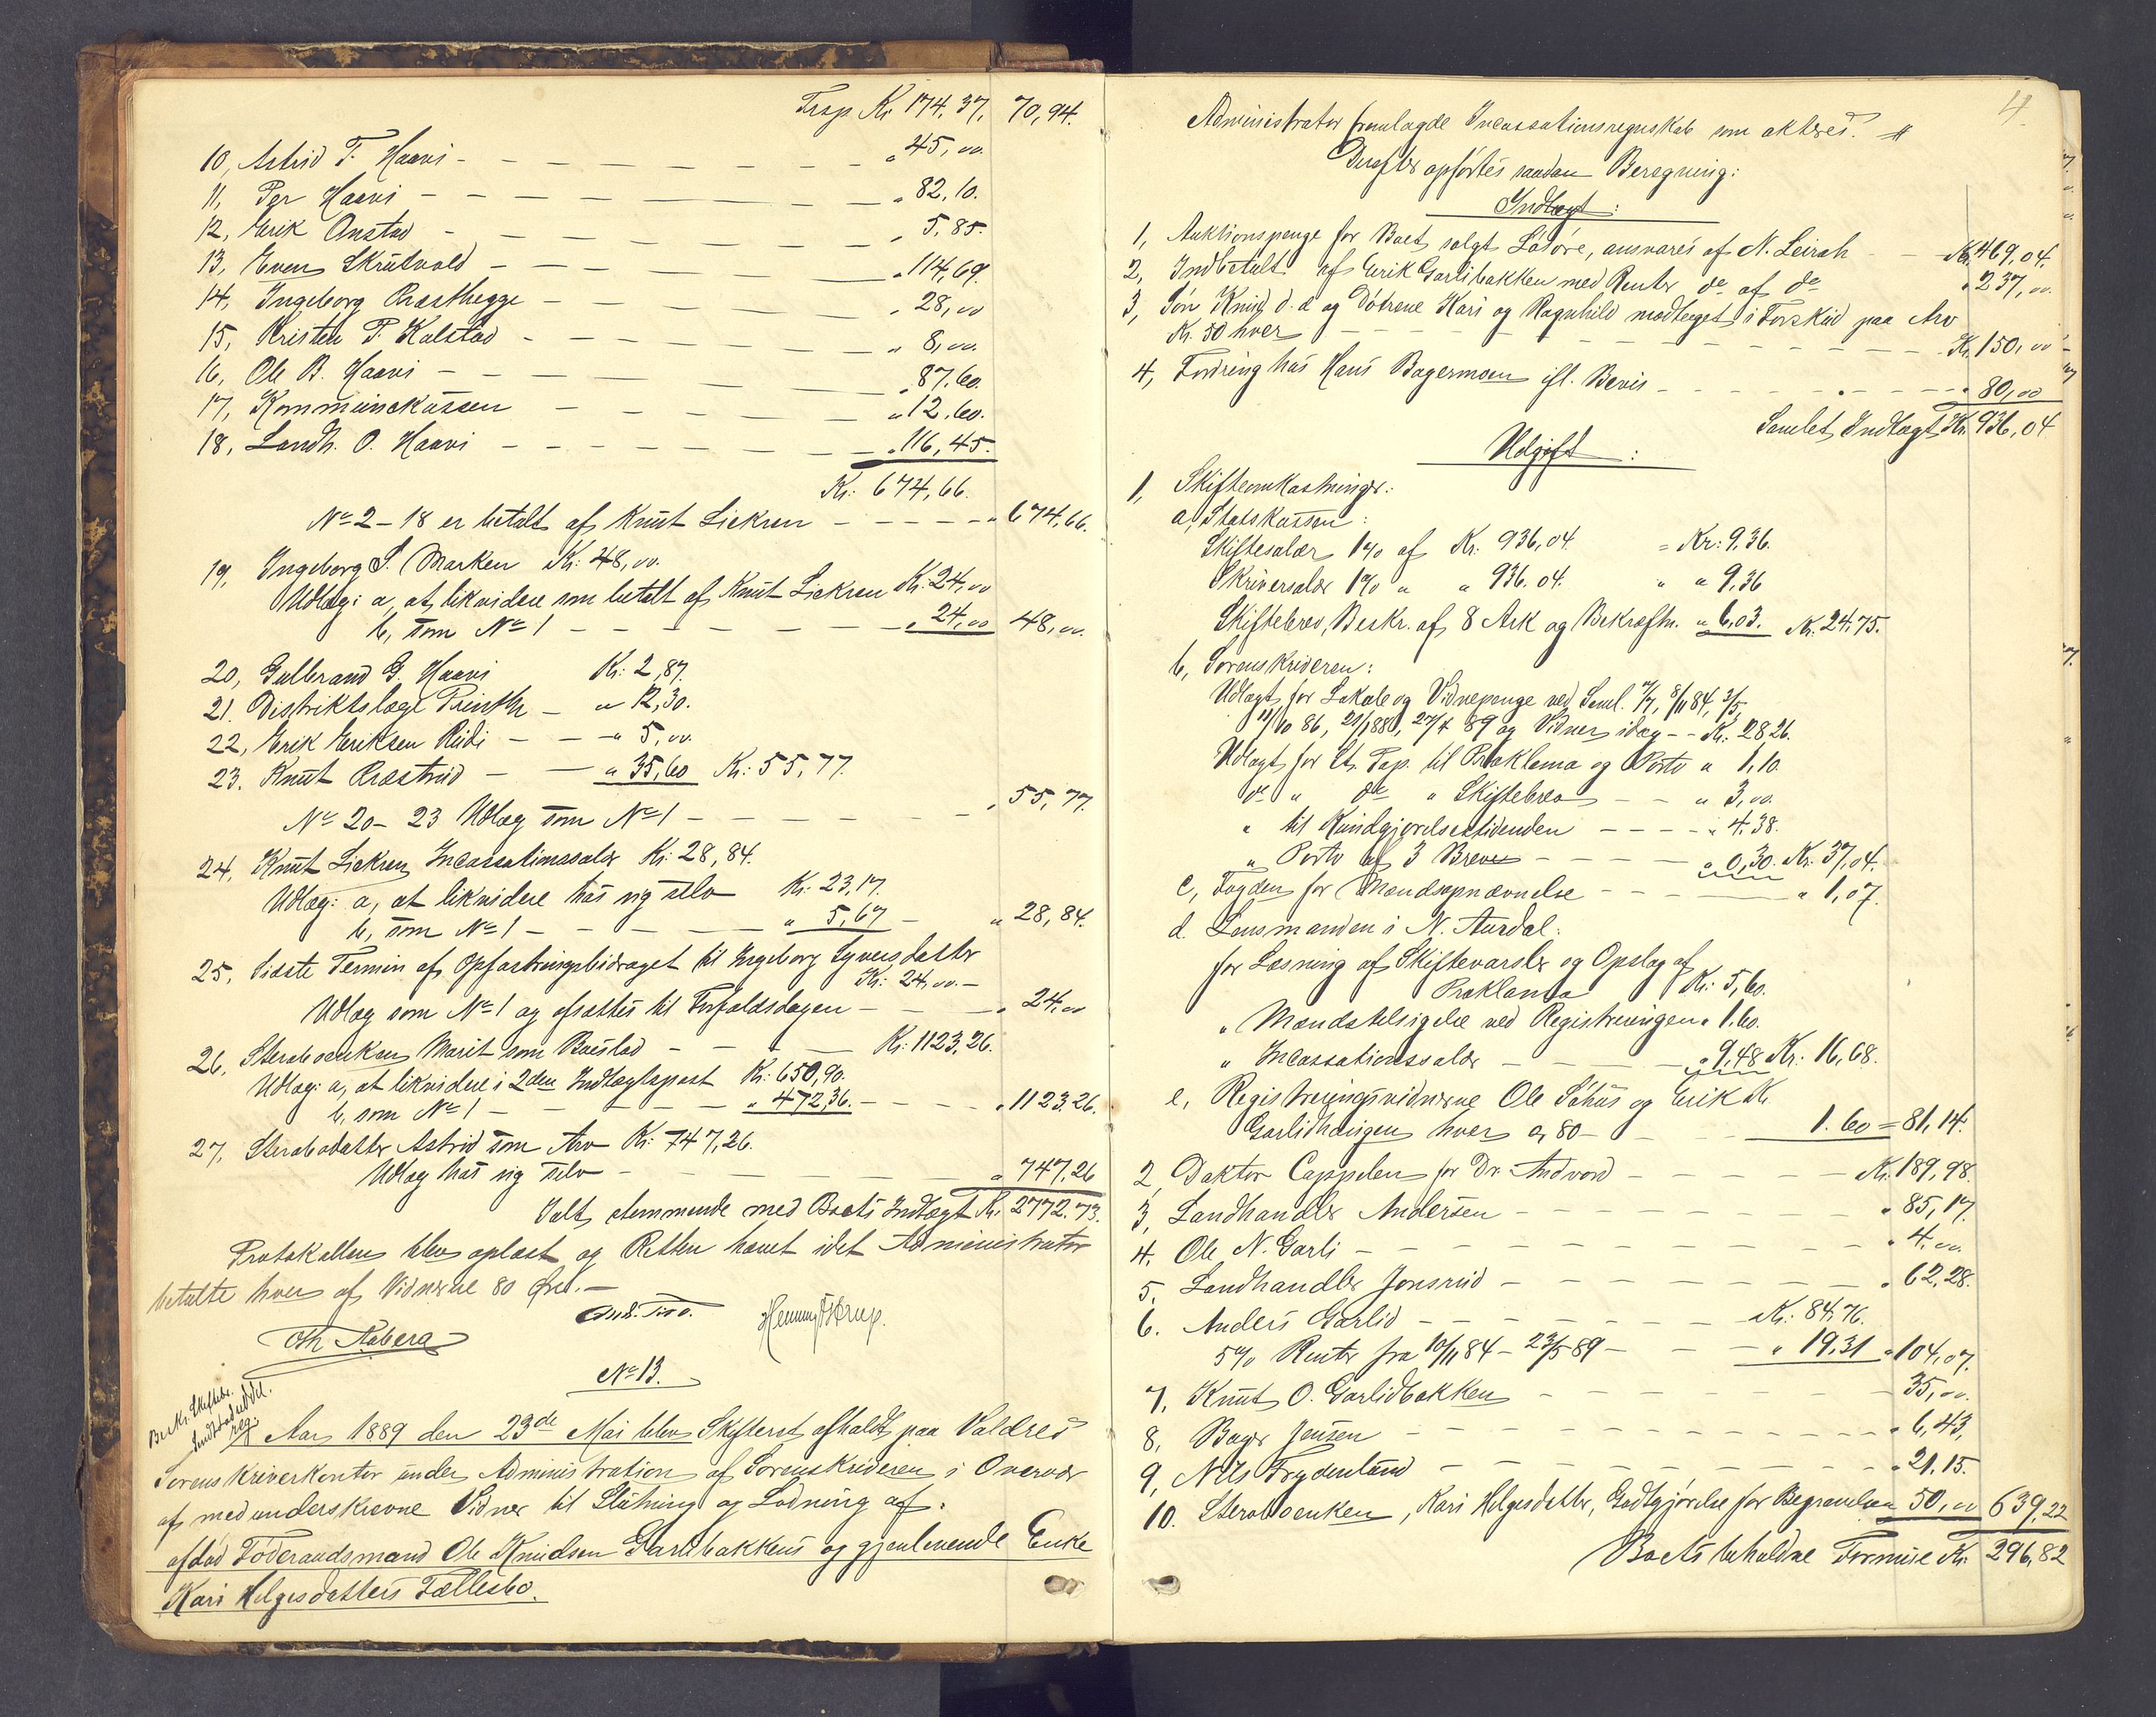 Trsp. Kr 174.37. 70,94.
10, Astrid T. Haavi - „ 45,00.
11, Per Haavi - „ 82.10.
12, Erik Onstad - „ 5,85.
13, Even Skrutvold - „ 114,69.
14, Ingeborg Præsthegge - „ 28,00
15, Kristen T. Kalstad - „ 8,00.
16, Ole B. Haavi - „ 87,60.
17, Kommunekassen - „ 12.60.
18, Landh. O. Haavi - „ 116,45.
Kr: 674,66.
No 2-18 er betalt af Knut Liekren - „ 674,66.
19, Ingeborg S. Marken Kr: 48,00.
Udlæg: a, at likvidere som betalt af Knut Liekren Kr: 24,00
b, som No 1 - „ 24,00 48,00.
20, Gulbrand G. Haavi Kr: 2,87.
21. Distriktslæge Printz - „ 12,30.
22, Erik Eriksen Rudi - „ 5,00.
23. Knut Præstrud - „ 35,60 Kr: 55,77.
No 20-23 Udlæg som No 1 - „ 55,77.
24, Knut Liekren Incassationssalær Kr: 28,84.
Udlæg: a, at likvidere hos sig selv Kr: 23,17.
b, som No 1 - „ 5,67 - „ 28,84.
25, Sidste Termin af Opfostringsbidraget til Ingeborg Syversdatter
Kr: 24,00.-
Udlæg som No 1 og afsættes til Forfaldsdagen - „ 24,00
26, Sterboenken Marit som Boeslod - Kr: 1123,26.
Udlæg: a, at likvidere i 2den Indtægtspost Kr: 650,90.
b, som No 1 - „ 472,36. - „ 1123.26.
27, Sterbodatter Astrid som Arv Kr: 747,26.
Udlæg hos sig selv - „ 747,26
Ialt stemmende med Boets Indtægt Kr: 2772.73.
Protokollen blev oplæst og Retten hævet idet Administrator
betalte hver af Vidnerne 80 Øre.-
Oth Aabera
Henning Astrup.
No 13.
Beskr. Skiftebr.
Aar 1889 den 23de Mai blev Skifteret afholdt paa Valdres
Sorenskriverkontor under Administration af Sorenskriveren i Overvær
af medunderskrevne Vidner til Slutning og Lodning af:
afdød Føderaadsmand Ole Knudsen Garlibakkens og gjenlevende Enke
Kari Helgesdatters Fællesbo.
4.
Administrator fremlagde Incassationsregnskab som akteres. #
Derefter opførtes saadan Beregning:
Indtægt:
1, Auktionspenge for Boet solgt Løsøre, ansvares af N. Leirah - Kr. 469,04.
2, Indbetalt af Erik Garlibakken med Renter do af do „ 237,00.
3, Søn Knud d.æ og Døtrene Kari og Ragnhild modtaget i Forskud paa Arv
Kr. 50 hver - Kr. 150,00 -
4, Fordring hos Hans Bagermoen ifl. Bevis - „ 80,00
Samlet Indtægt Kr. 936,04
Udgift:
1, Skifteomkostninger:
a, Statskassen:
Skiftesalær 1% af Kr. 936,04. = Kr: 9,36.
Skriversalær 1% „ „ 936.04. „ „ 9,36
Skiftebrev, Beskr. af 8 Ark og Bekræftn. „ 6,03. Kr. 24,75.
b, Sorenskriveren:
Udlagt for Lokale og Vidnepenge ved Saml. /7, 8/11 84, 3/5,
/10 86, 21/1 88, 27/4 89 og Vidner idag - - Kr: 28 26.
Udlagt for St. Pap. til Proklama og Porto „ 1,10.
do „ do „ Skiftebrev - „ 3,00.
„ til Kundgjørelsestidenden - „ 4.38.
„ Porto af 3 Breve - „ 0,30. Kr. 37,04.
c, Fogden for Mandsopnævnelse - „ 1,07.
d. Lensmanden i N. Aurdal:
for Læsning af Skiftevarsler og Opslag af
Proklama Kr: 5,60.
„ Mændstilsigelse ved Registreringen „ 1.60.
„ Incassationssalær - „ 9,48 Kr: 16,68.
e, Registreringsvidnerne Ole Søhus og Erik K.
Garlidhaugen hver o, 80 - 1.60 = 81,14.
2, Doktor Cappelen for Dr. Andvord - Kr. 189,98.
3, Landhandler Andersen - „ 85,17.
4. Ole N. Garli - „ 4,00.
5. Landhandler Jonsrud - „ 62,28.
6. Anders Garlid - Kr. 84,76.
5% Renter fra 10/11 84 - 23/5 89 - „ 19.31 „ 104,07.
7, Knut O. Garlidbakken - 35,00.
8, Bager Jensen - „ 6,43,
9, Nils Frydenlund - „ 21.15.
10. Sterboenken, Kari Helgesdatter, Godtgjørelse for Begravelsen 50,00 639,22
Boets beholdne Formue Kr. 296,82